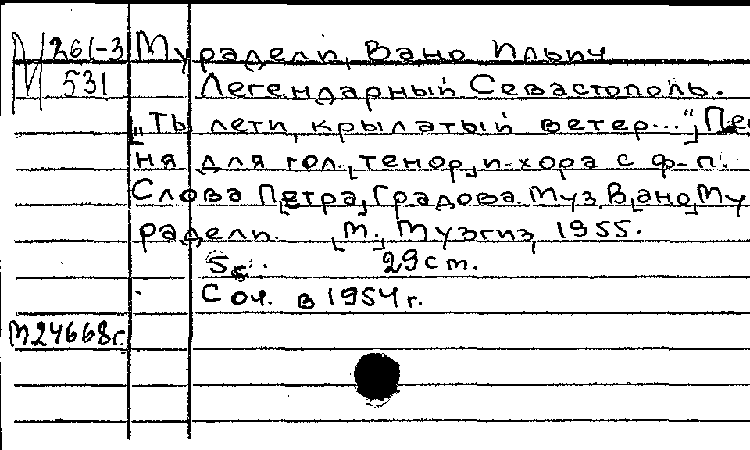 М 261-3 Мурадели, Вано Ильич
531 Легендарный Севастополь.
„Ты лети, крылатый ветер...", Пес
ня для гол. [тенор] и хора с ф-п.
Слова П[етра] Градова Муз. В[ано] Му
радели. [М.], Музгиз, 1955.
5с. 29см.
Соч. в 1954г.
М24668г.